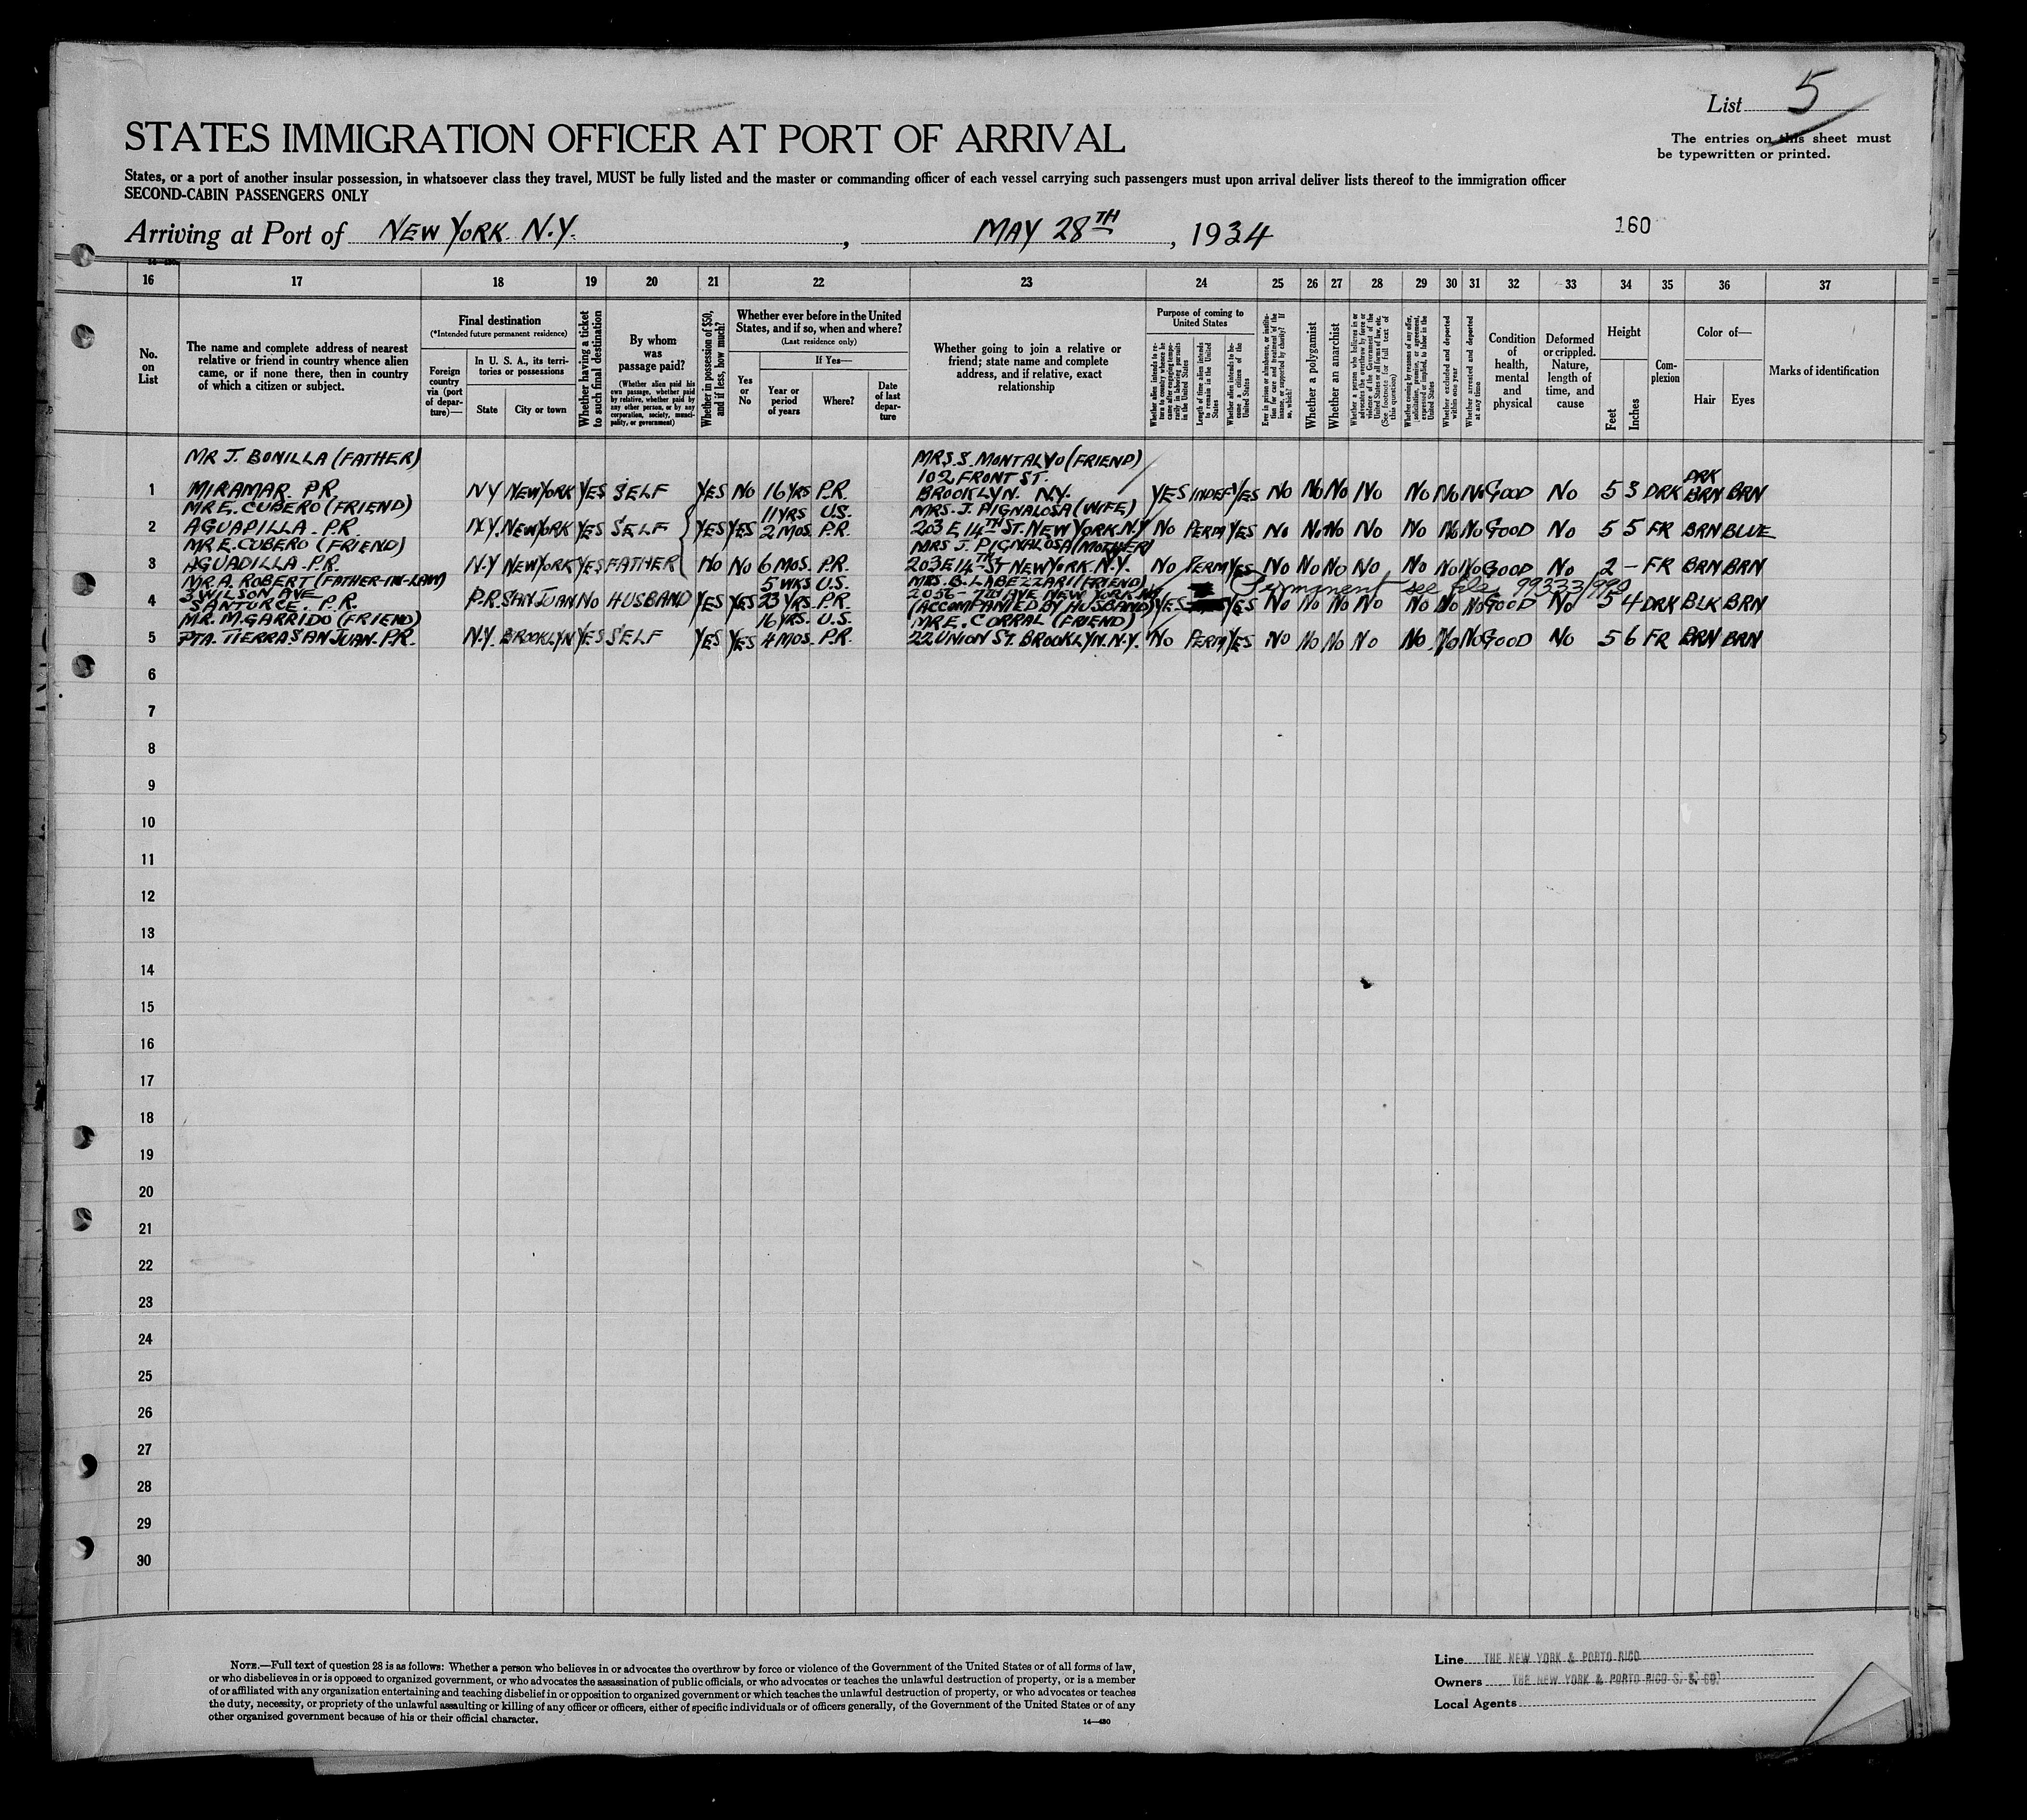 List 5
The entries on this sheet must
be typewritten or printed.
STATES IMMIGRATION OFFICER AT PORT OF ARRIVAL
States, or a port of another insular possession, in whatsoever class they travel, MUST be fully listed and the master or commanding officer of each vessel carrying such passengers must upon arrival deliver lists thereof to the immigration officer
SECOND-CABIN PASSENGERS ONLY
Arriving at Port of NEW YORK. N.Y. , MAY 28TH , 1934
160
16 17 18 19 20 21 22 23 24 25 26 27 28 29 30 31 32 33 34 35 36 37
No. on List
The name and complete address of nearest relative or friend in country whence alien came, or if none there, then in country of which a citizen or subject.
Final destination
(*Intended future permanent residence)
Foreign country via (port of departure)—
In U. S. A., its territories or possessions
State City or town
Whether having a ticket to such final destination
By whom was passage paid?
(Whether alien paid his own passage, whether paid by relative, whether paid by any other person, or by any corporation, society, municipality, or government)
Whether in possession of $50, and if less, how much?
Whether ever before in the United States, and if so, when and where?
(Last residence only)
Yes or No
If Yes—
Year or period of years
Where?
Date of last departure
Whether going to join a relative or friend; state name and complete address, and if relative, exact relationship
Purpose of coming to United States
Whether alien intends to return to country whence he came after engaging temporarily in laboring pursuits in the United States
Length of time alien intends to remain in the United States
Whether alien intends to become a citizen of the United States
Ever in prison or almshouse, or institution for care and treatment of the insane, or supported by charity? If so, which?
Whether a polygamist
Whether an anarchist
Whether a person who believes in or advocates the overthrow by force or violence of the Government of the United States or all forms of law, etc. (See footnote for full text of this question)
Whether coming by reasons of any offer, solicitation, promise, or agreement, expressed or implied, to labor in the United States
Whether excluded and deported within one year
Whether arrested and deported at any time
Condition of health, mental and physical
Deformed or crippled. Nature, length of time, and cause
Height
Feet Inches
Complexion
Color of—
Hair Eyes
Marks of identification
MR J. BONILLA (FATHER) MRS. S. MONTALVO (FRIEND)
102 FRONT ST. DRK
1 MIRAMAR. P.R. N.Y NEW YORK YES SELF YES NO 16 YRS P.R. BROOKLYN. N.Y. YES INDEF YES NO NO NO NO NO NO NO GOOD NO 5 3 DRK BRN BRN
MR E. CUBERO (FRIEND) 11 YRS U.S. MRS. J. PIGNALOSA (WIFE)
2 AGUADILLA. P.R. N.Y. NEW YORK YES SELF YES YES 2 MOS. P.R. 203 E. 14TH ST. NEW YORK. N.Y NO PERM YES NO NO NO NO NO NO NO GOOD NO 5 5 FR BRN BLUE
MR E. CUBERO (FRIEND) MRS J. PIGNALOSA (MOTHER)
3 AGUADILLA. P.R. N.Y NEW YORK YES FATHER NO NO 6 MOS. P.R. 203 E 14TH ST NEW YORK. N.Y. NO PERM YES NO NO NO NO NO NO NO GOOD NO 2 - FR BRN BRN
MR. A. ROBERT (FATHER-IN-LAW) 5 WKS U.S. MRS. B. LABEZZARI (FRIEND)
3 WILSON AVE 2056 - 7TH AVE NEW YORK NY Permanent see file 99333/990
4 SANTURCE. P.R. P.R. SAN JUAN NO HUSBAND YES YES 23 YRS. P.R. (ACCOMPANIED BY HUSBAND) YES YES NO NO NO NO NO NO NO GOOD NO 5 4 DRK BLK BRN
MR. M. GARRIDO (FRIEND) 16 YRS. U.S. MR E. CORRAL (FRIEND)
5 PTA. TIERRA SAN JUAN. P.R. N.Y. BROOKLYN YES SELF YES YES 4 MOS. P.R. 22 UNION ST. BROOKLYN. N.Y. NO PERM YES NO NO NO NO NO NO NO GOOD NO 5 6 FR BRN BRN
6
7
8
9
10
11
12
13
14
15
16
17
18
19
20
21
22
23
24
25
26
27
28
29
30
NOTE.—Full text of question 28 is as follows: Whether a person who believes in or advocates the overthrow by force or violence of the Government of the United States or of all forms of law,
or who disbelieves in or is opposed to organized government, or who advocates the assassination of public officials, or who advocates or teaches the unlawful destruction of property, or is a member
of or affiliated with any organization entertaining and teaching disbelief in or opposition to organized government or which teaches the unlawful destruction of property, or who advocates or teaches
the duty, necessity, or propriety of the unlawful assaulting or killing of any officer or officers, either of specific individuals or of officers generally, of the Government of the United States or of any
other organized government because of his or their official character.
14—430
Line THE NEW YORK & PORTO RICO
Owners THE NEW YORK & PORTO RICO S. S. CO.
Local Agents